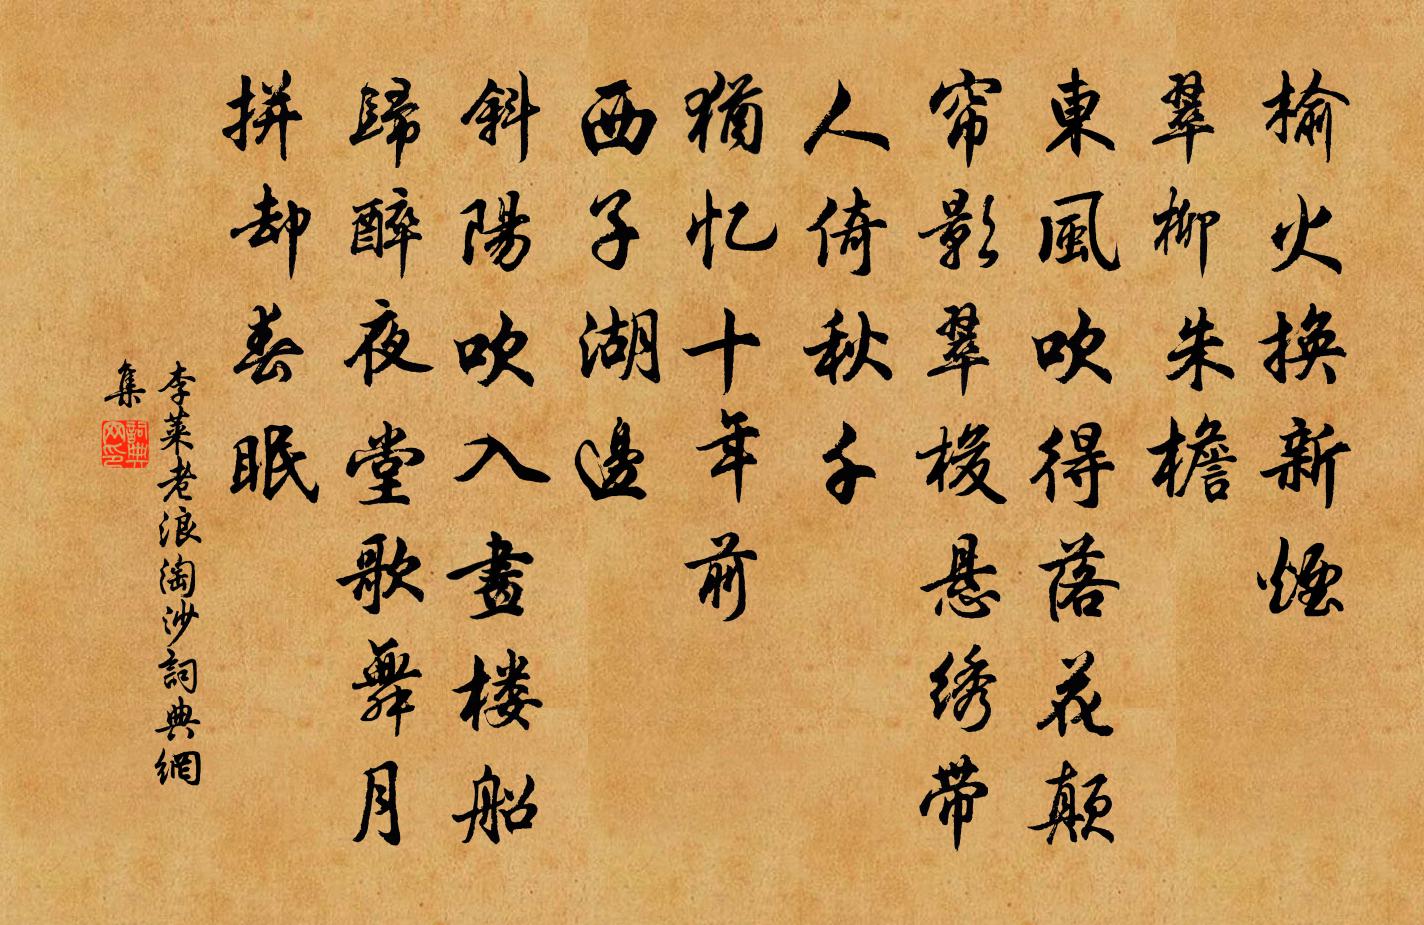 榆火換新煙
翠柳朱檐
東風吹得落花顛
帘影翠梭悬绣带
人倚秋千
猶忆十年前
西子湖邊
斜陽吹入畫楼船
歸醉夜堂歌舞月
拼却春眠
李莱老浪淘沙詞典網
集
詞典網印